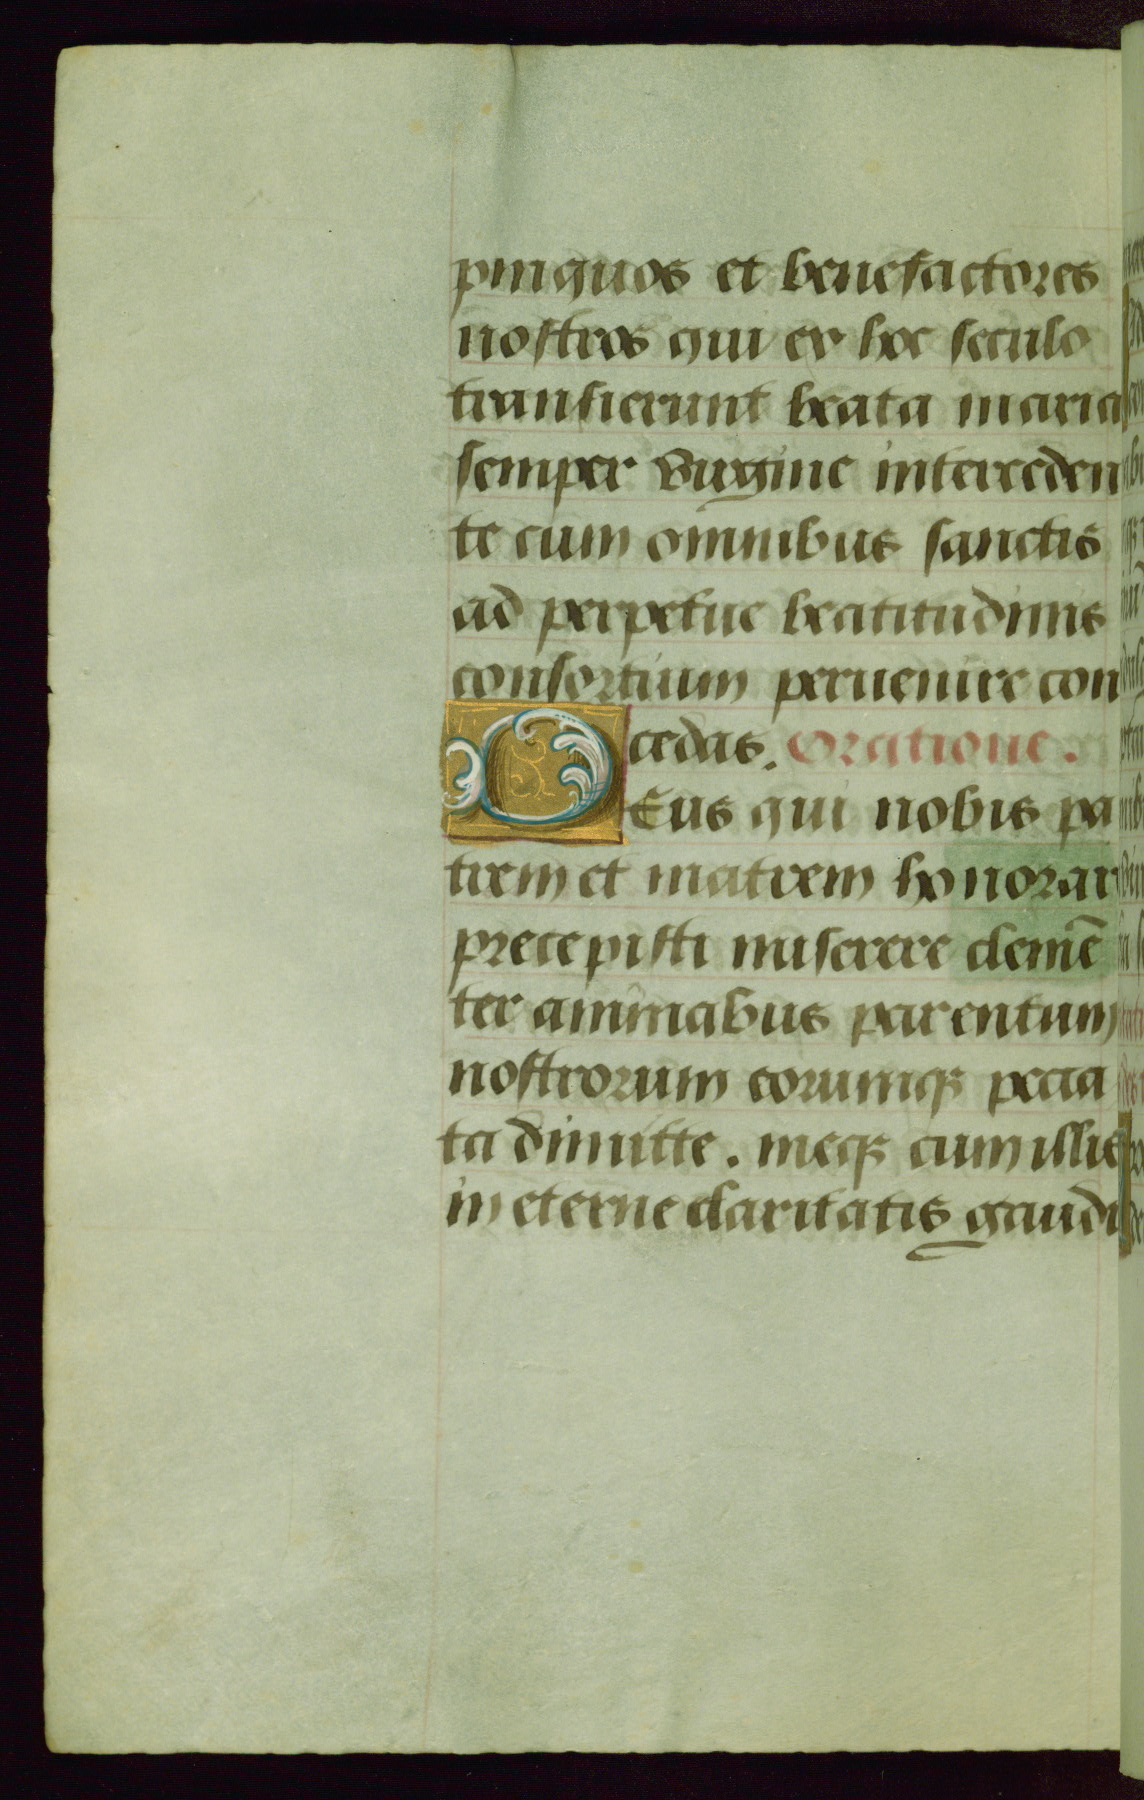 pinquos et benefactores
nostros qui ex hoc seculo
transierunt beata maria
semper virgine interceden
te cum omnibus sanctis
ad perpetue beatitudinis
consortium peruenire con
cedas. Oratione.
DEus qui nobis pa
trem et matrem honorar
precepisti miserere clemē
ter animabus parentum
nostrorum eorumqꝫ pecca
ta dimitte. meqꝫ cum illis
in eterne claritatis gaudi